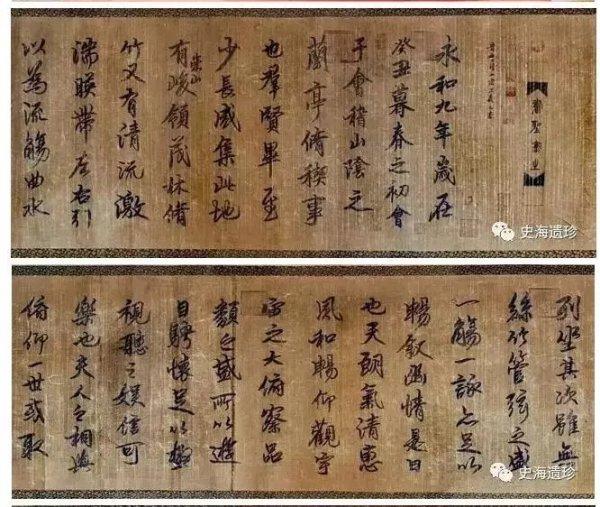 永和九年歲在
癸丑暮春之初會
于會稽山陰之
蘭亭脩稧事
也羣賢畢至
少長咸集此地
有峻領茂林脩
崇山
竹又有清流激
湍暎帶左右引
以為流觴曲水
史海遗珍
列坐其次雖無
絲竹管弦之盛
一觴一詠亦足以
暢敘幽情是日
也天朗氣清惠
風和暢仰觀宇
宙之大俯察品
類之盛所以遊
目騁懷足以極
視聽之娛信可
樂也夫人之相與
俯仰一世或取
史海遗珍